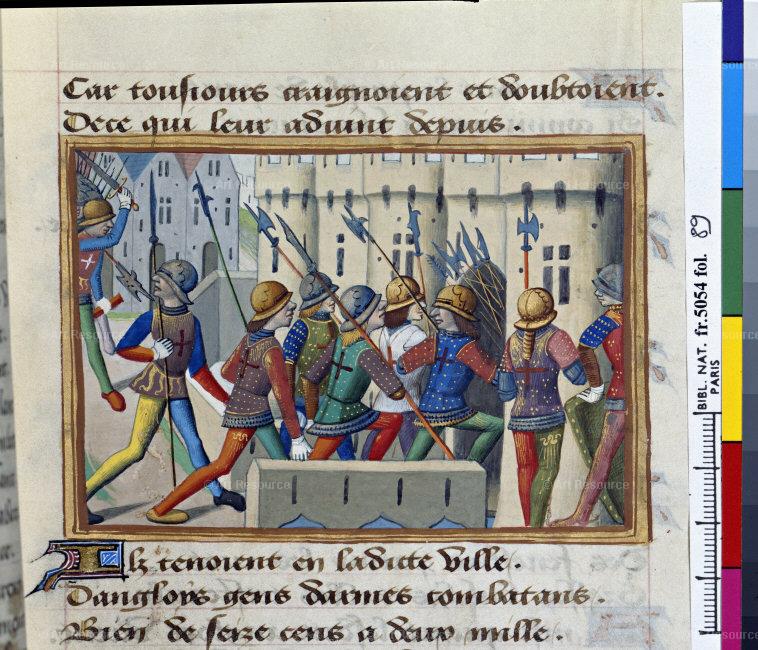 Car tousiours craignoient et doubtoient.
Dece qui leur aduint depuis.
Ilz tenoient en ladicte ville.
Dangloys gens darmes combatans.
Bien de seize cens a deux mille.
BIBL. NAT. fr.5054 fol. 89
PARIS
Art Resource